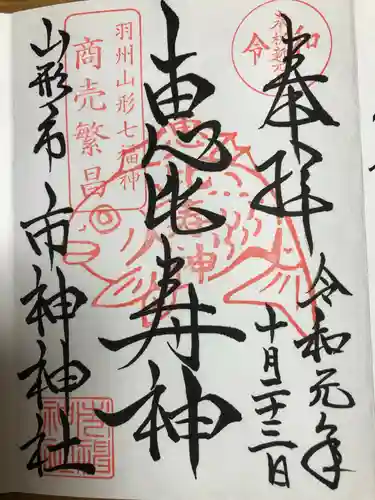 奉拝
令和元年
十月二十三日
恵比寿神
羽州山形七福神
商売繁昌
山形市
市神神社
令和
恵比寿神